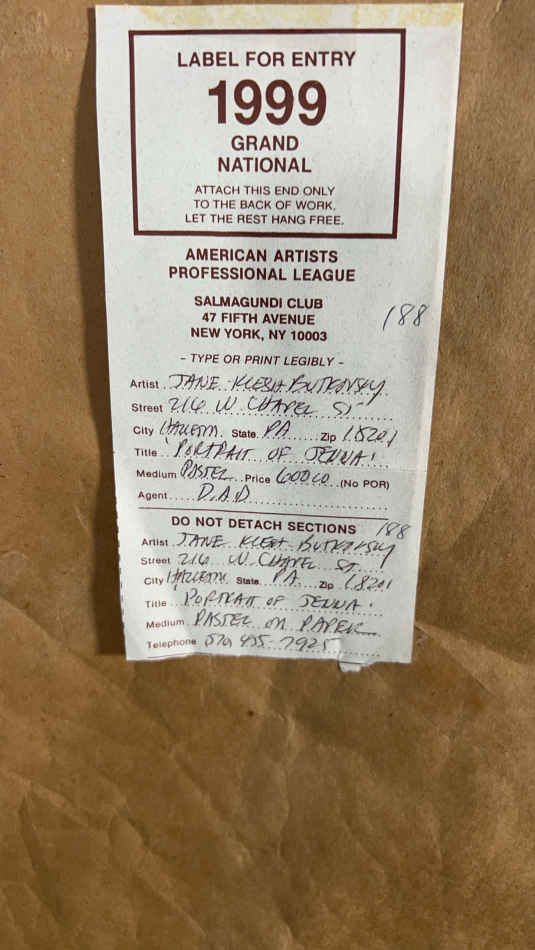 LABEL FOR ENTRY
1999
GRAND
NATIONAL
ATTACH THIS END ONLY
TO THE BACK OF WORK.
LET THE REST HANG FREE.
AMERICAN ARTISTS
PROFESSIONAL LEAGUE
SALMAGUNDI CLUB
47 FIFTH AVENUE
NEW YORK, NY 10003
188
- TYPE OR PRINT LEGIBLY -
Artist JANE KLESH BUTKOVSKY
Street 216 W. CHAPEL ST
City HAZLETON State PA Zip 18201
Title 'PORTRAIT OF JENNA'
Medium PASTEL Price 600.00 (No POR)
Agent D.A.D
DO NOT DETACH SECTIONS 188
Artist JANE KLESH BUTKOVSKY
Street 216 W. CHAPEL ST.
City HAZLETON State PA Zip 18201
Title 'PORTRAIT OF JENNA'
Medium PASTEL ON PAPER
Telephone 570 455-7925